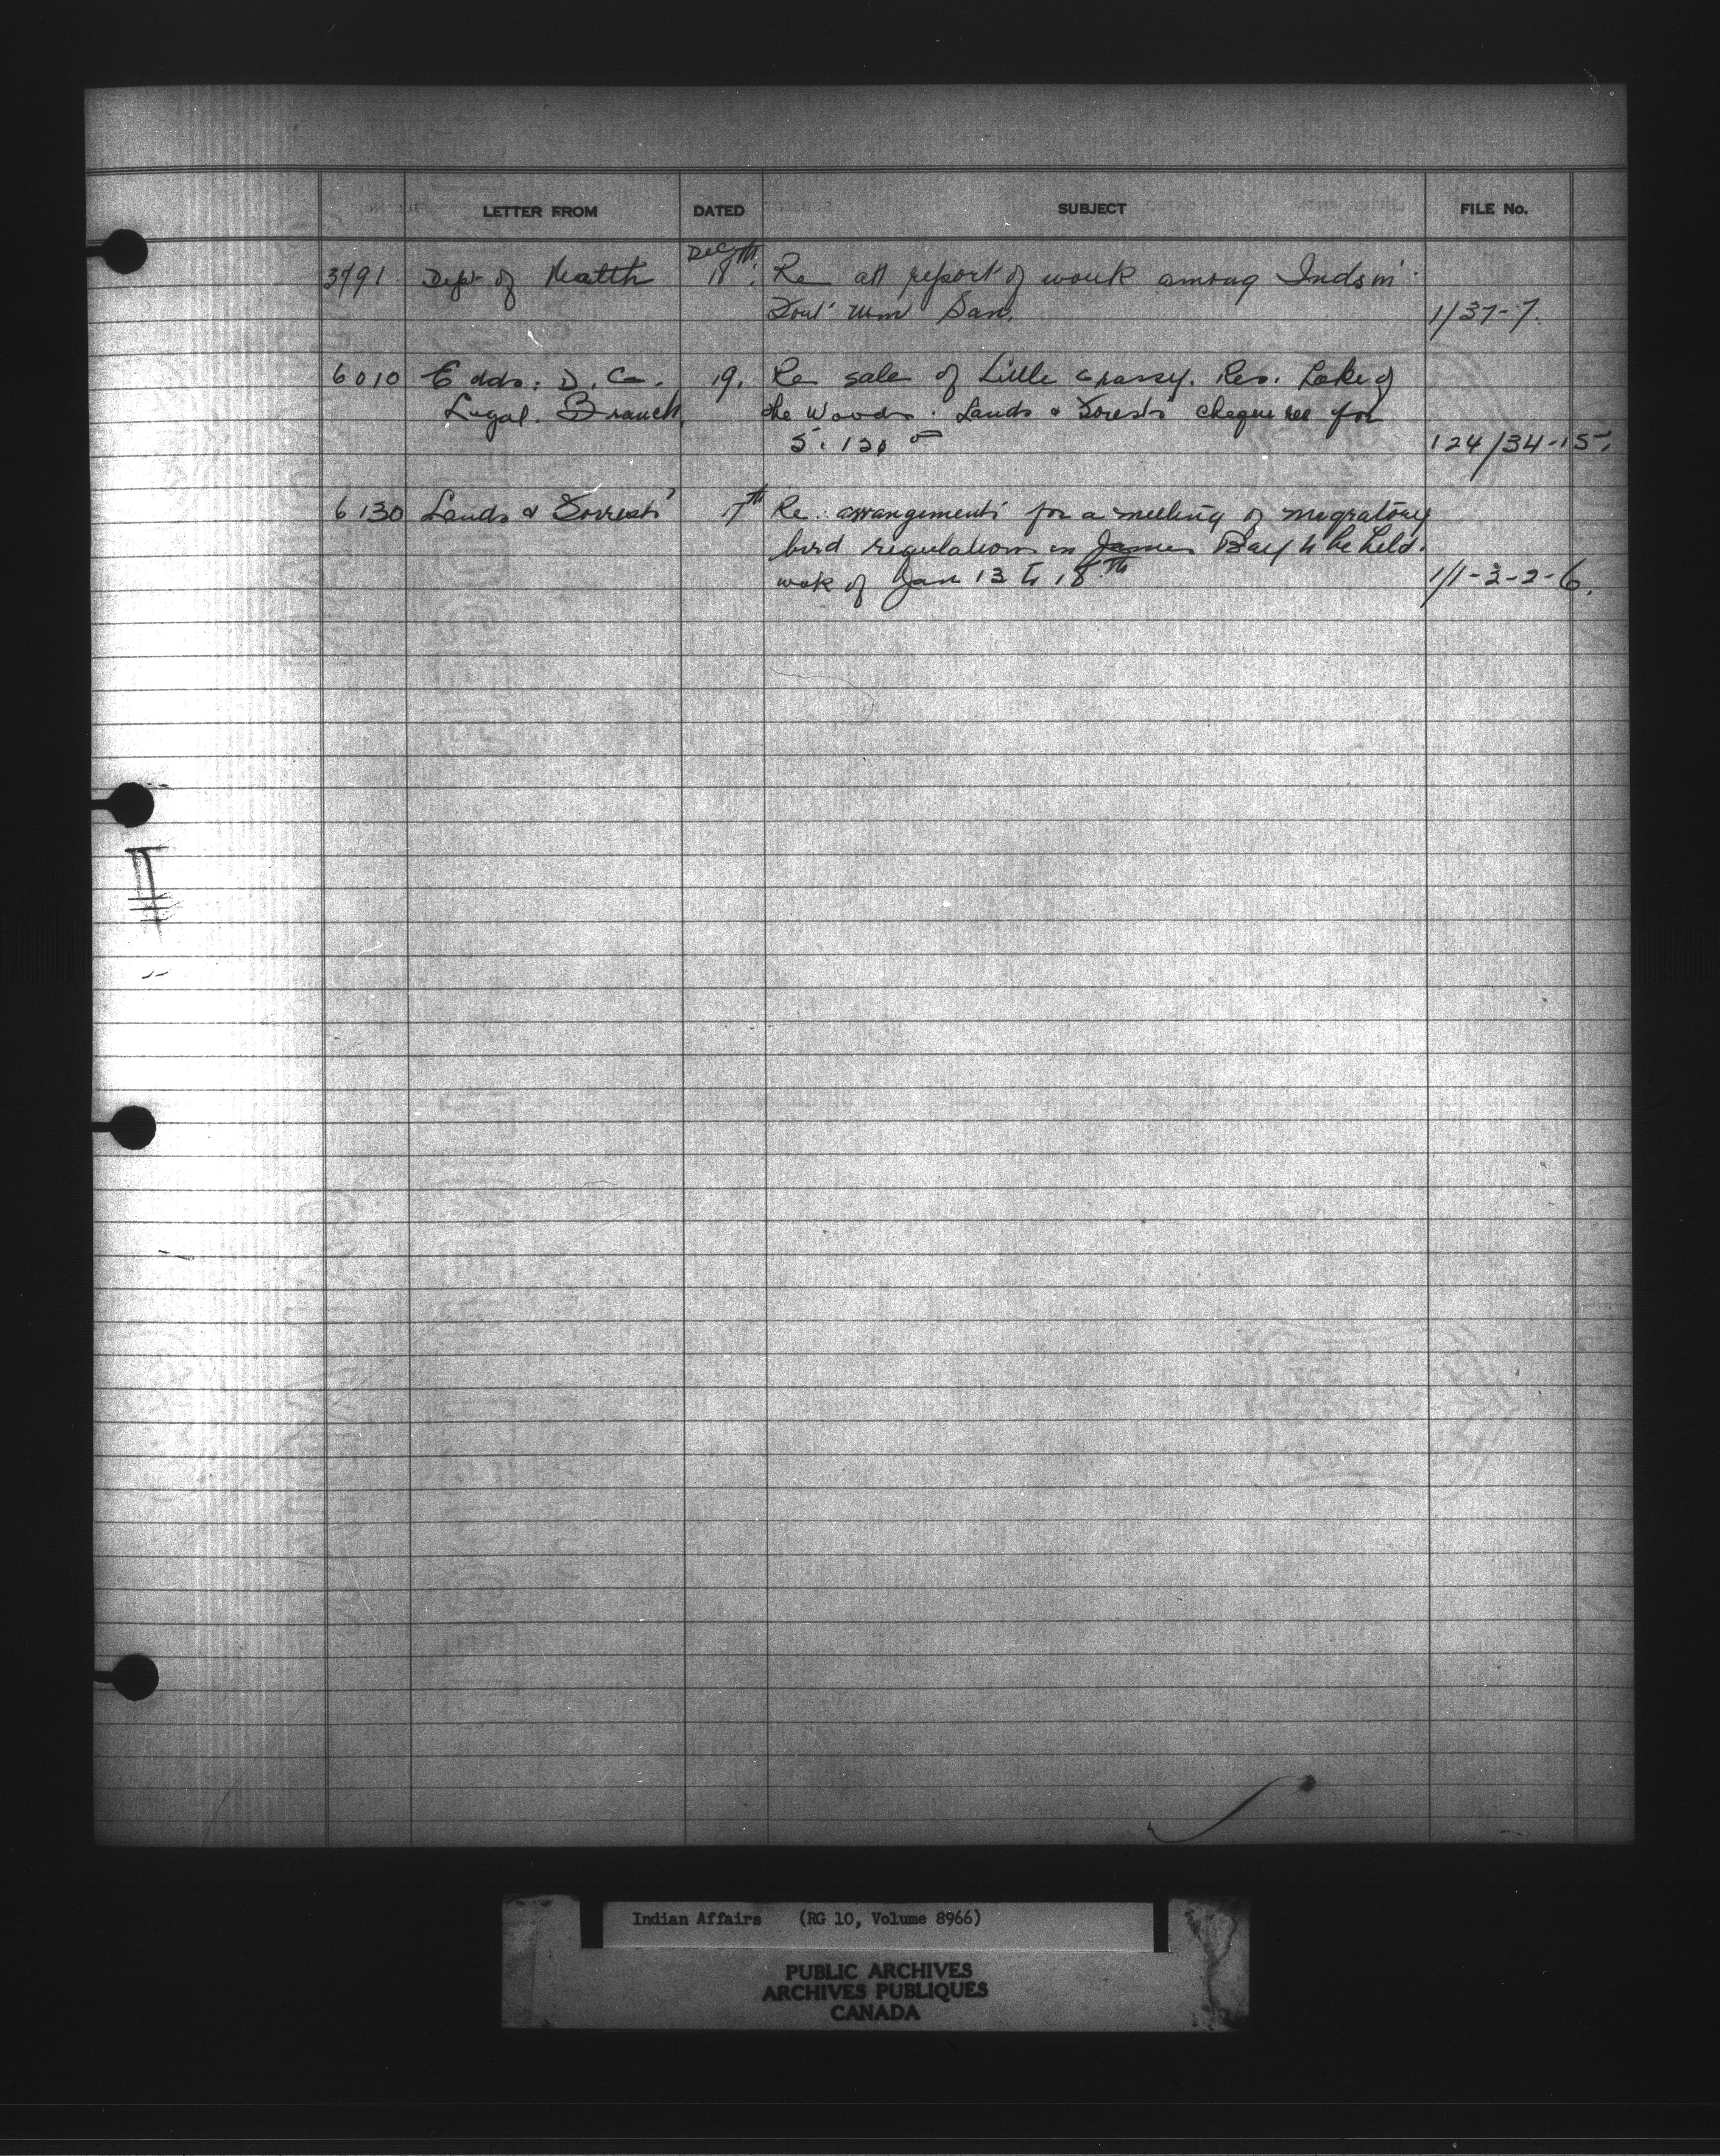 LETTER FROM DATED SUBJECT FILE No.
Dec
3791 Dept of Health 18th. Re att report of work among Inds in
Fort Wm San. 1/37-7.
6010 E dds. D. C. 19. Re sale of Little Grassy. Res. Lake of
Legal. Branch, the Woods. Lands & Forests cheque for
5.120 00 124/34-15.
6130 Lands & Forrests 17th Re. arrangements for a meeting of migratory
bird regulations in James Bay to be held.
week of Jan 13 to 18th 1/1-2-2-6.
Indian Affairs (RG 10, Volume 8966)
PUBLIC ARCHIVES
ARCHIVES PUBLIQUES
CANADA